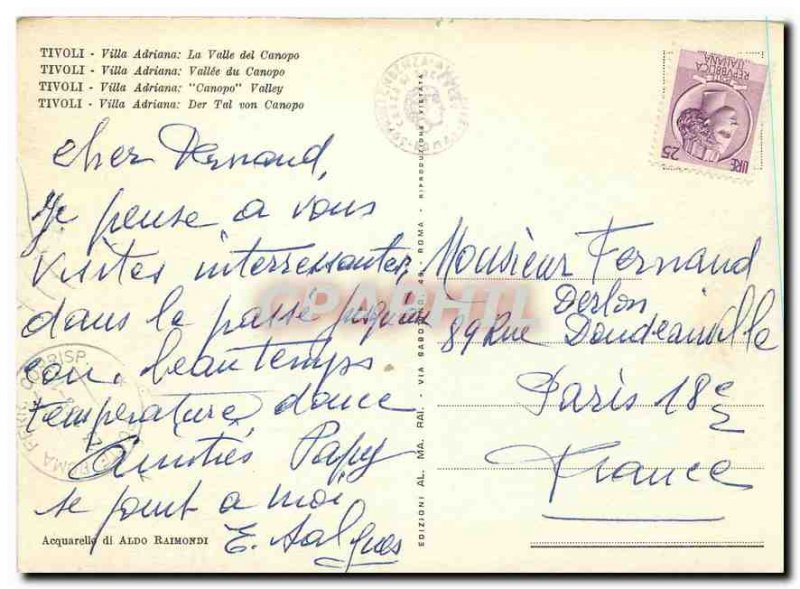 TIVOLI - Villa Adriana: La Valle del Canopo
TIVOLI - Villa Adriana: Vallée du Canopo
TIVOLI - Villa Adriana: "Canopo" Valley
TIVOLI - Villa Adriana: Der Tal von Canopo
Cher Fernand,
Je pense a vous
visites interressantes,
dans le passé jusqu'au
beau temps
température douce
Amitiés Papy
se joint a moi
E.
Acquarello di ALDO RAIMONDI
EDIZIONI AL. MA. RAI. - VIA GABO - ROMA - RIPRODUZIONE VIETATA
REPVBBLICA
ITALIANA
LIRE 25
Monsieur Fernand
Derlon
89 Rue Doudeauville
Paris 18e
France
CPAPHIL